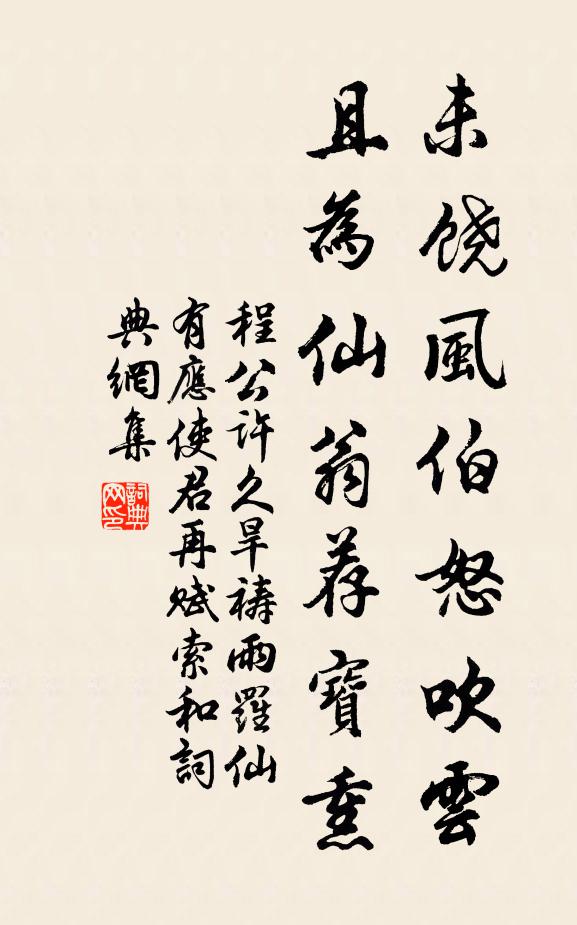 未饒風伯怒吹雲
且為仙翁荐寶熏
程公許久旱禱雨羅仙
有應使君再賦索和詞
典網集
詞典
网印